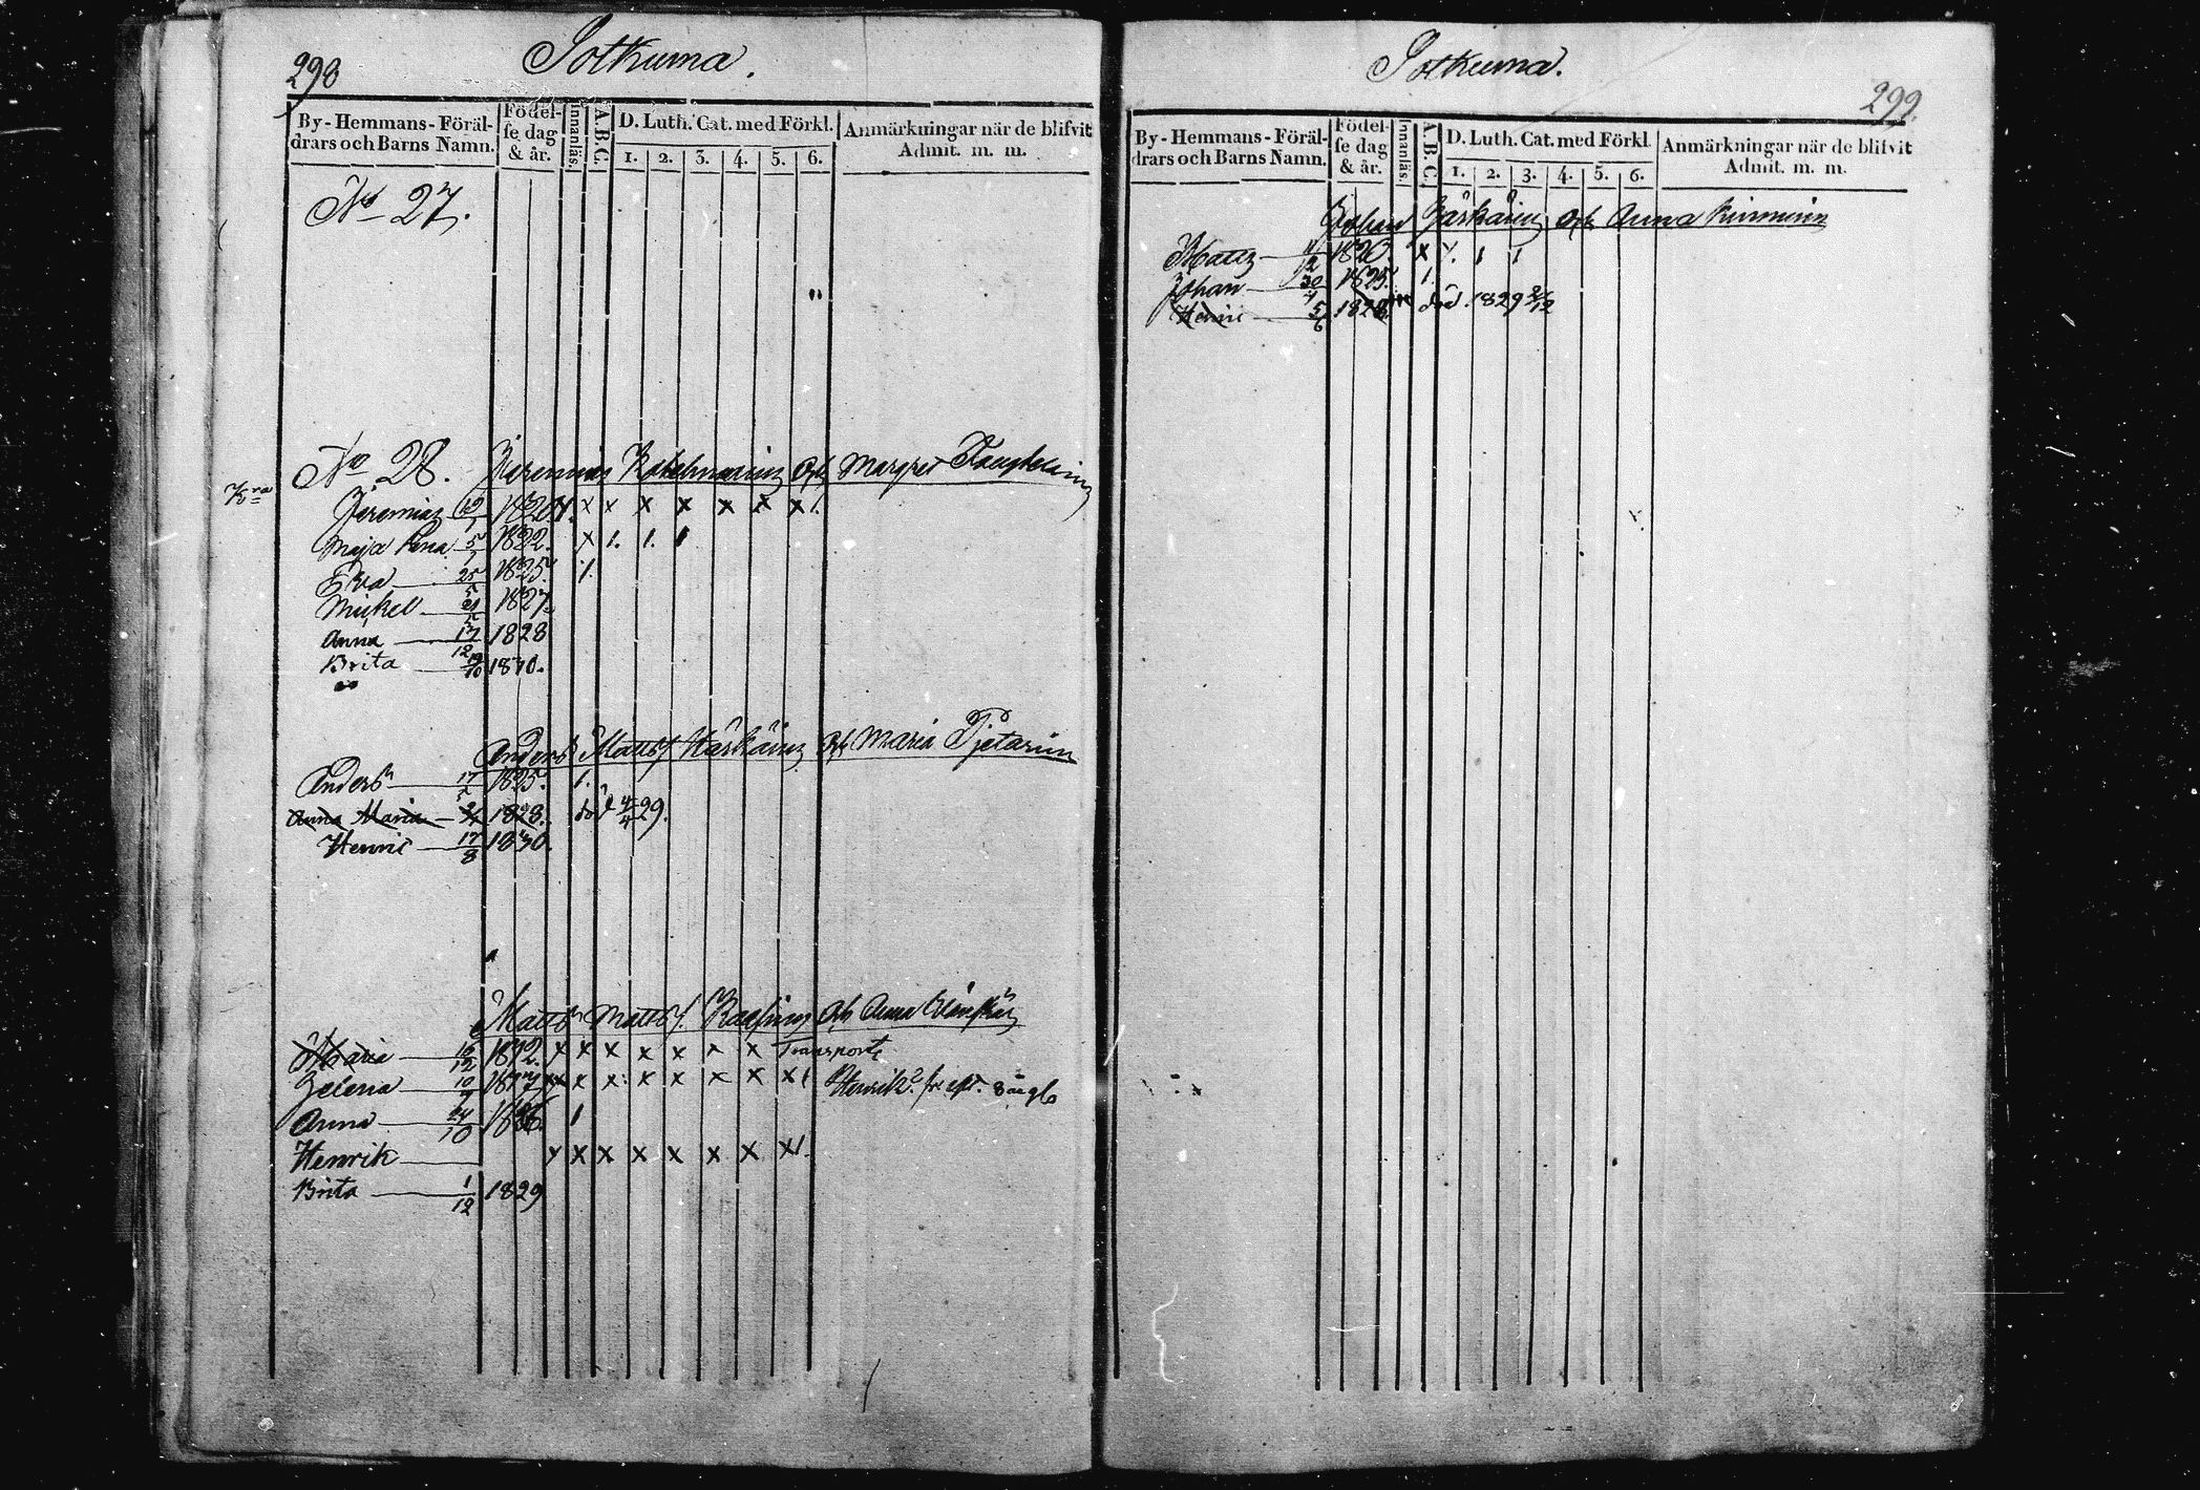 298
Sotkuma.
By-Hemmans-Föräl-
drars och Barns Namn.
Födel-
se dag
& år.
Innanläs.
A.B.C.
D. Luth. Cat. med Förkl.
1. 2. 3. 4. 5. 6.
Anmärkningar när de blifvit
Admit. m. m.
No 27.
No 28. Jeremias Og Margret
Jeremias 1820. x x x x x x x 1.
Maja Lena 5 1822. x 1. 1. 1
Eva 25 1825. 1.
Mickel 21 1827.
Anna 17/12 1828
Brita 19/10 1830.
Anders Matts. Og Maria Pjetarin
Anders 17 1825. 1.
Anna Maria 1828. död 4/4 29.
Henric 17/8 1830.
Matts Matts. Og Anna
Maria 12 x x x x x x x Transporte
Helena 10 x x x x x x x x 1 Henrik
Anna 24/10 1
Henrik x x x x x x x x 1.
Brita 1/12 1829
Sotkuma.
299.
By-Hemmans-Föräl-
drars och Barns Namn.
Födel-
se dag
& år.
Innanläs.
A.B.C.
D. Luth. Cat. med Förkl.
1. 2. 3. 4. 5. 6.
Anmärkningar när de blifvit
Admit. m. m.
Johan Og Anna
Matts 1820. x 1. 1 1
Johan 30 1825. 1.
Henric 5/6 1828. död 1829